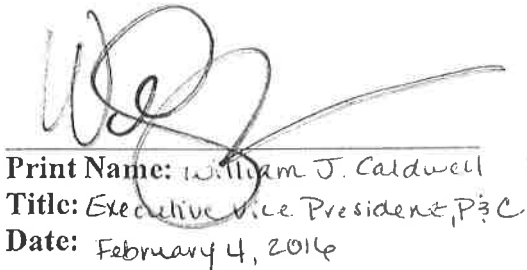 Print Name: William J. Caldwell
Title: Executive Vice President, P&C
Date: February 4, 2016